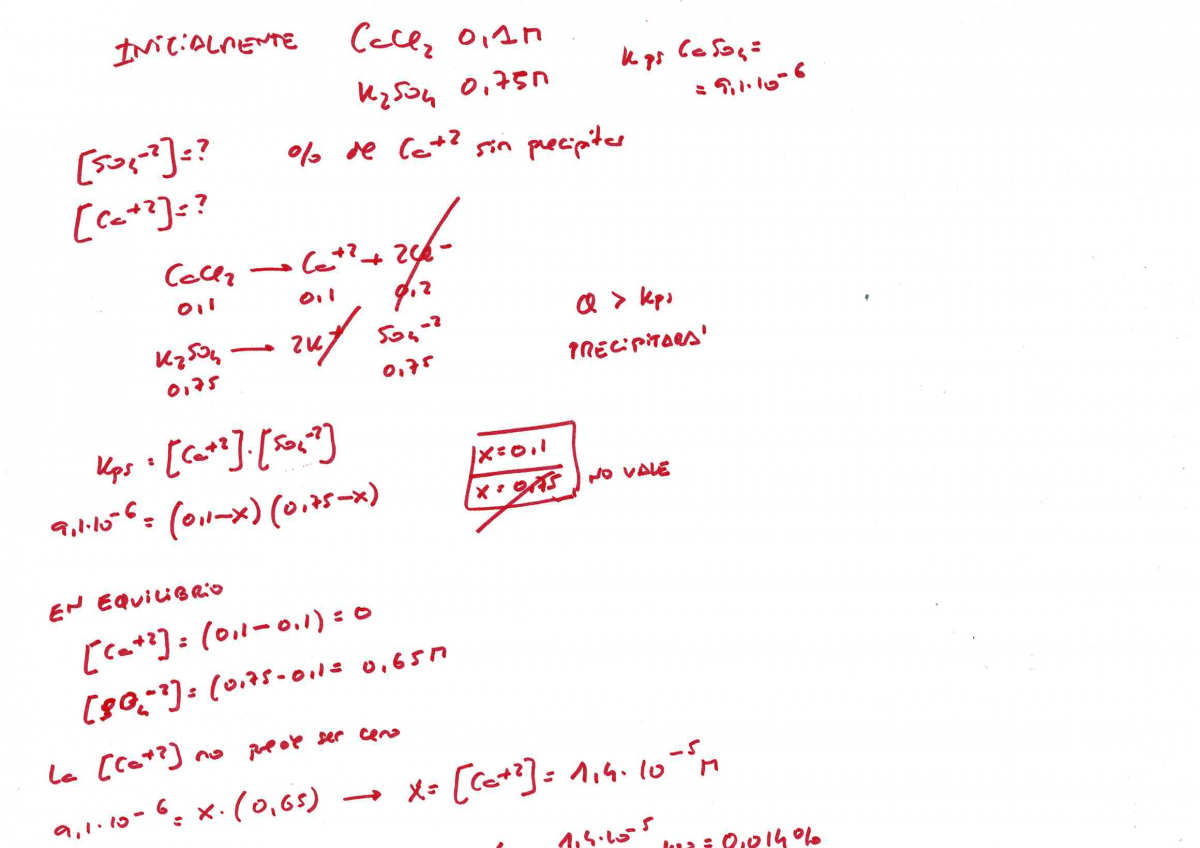 INICIALMENTE CaCl₂ 0,1M
K₂SO₄ 0,75M
Kps CaSO₄=
= 9,1·10⁻⁶
[SO₄⁻²]=? % de Ca⁺² sin precipitar
[Ca⁺²]=?
CaCl₂ → Ca⁺² + 2Cl⁻
0,1 0,1 0,2
K₂SO₄ → 2K⁺ SO₄⁻²
0,75 0,75
Q > Kps
PRECIPITARA'
Kps = [Ca⁺²]·[SO₄⁻²]
9,1·10⁻⁶ = (0,1-x)(0,75-x)
x=0,1
x=0,75 NO VALE
EN EQUILIBRIO
[Ca⁺²] = (0,1-0,1) = 0
[SO₄⁻²] = (0,75-0,1 = 0,65M
La [Ca⁺²] no puede ser cero
9,1·10⁻⁶ = x·(0,65) → x = [Ca⁺²] = 1,4·10⁻⁵ M
1,4·10⁻⁵ = 0,014%